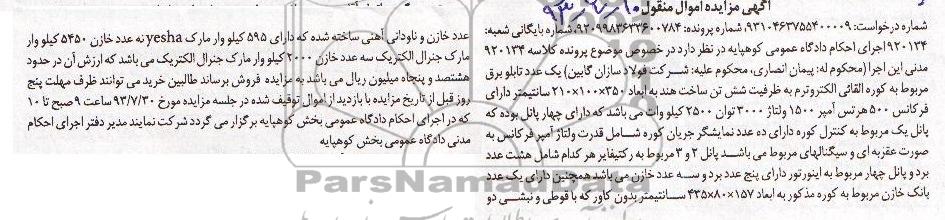 آگهی مزایده اموال منقول
شماره درخواست: ۹۳۱۰۴۶۳۷۵۵۴۰۰۰۰۹، شماره پرونده: ۹۲۰۹۹۸۳۶۳۳۶۰۰۷۸۴، شماره بایگانی شعبه:
۹۲۰۱۳۴ اجرای احکام دادگاه عمومی کوهپایه در نظر دارد در خصوص موضوع پرونده کلاسه ۹۲۰۱۳۴
مدنی این اجرا (محکوم له: پیمان انصاری، محکوم علیه: شرکت فولاد سازان گابین) یک عدد تابلو برق
مربوط به کوره القائی الکتروترم به ظرفیت شش تن ساخت هند به ابعاد ۳۵۰×۱۰۰×۲۱۰ سانتیمتر دارای
فرکانس ۵۰۰ هرتس آمپر ۱۵۰۰ ولتاژ ۳۰۰۰ توان ۲۵۰۰ کیلو وات می باشد که دارای چهار پانل بوده که
پانل یک مربوط به کنترل کوره دارای ده عدد نمایشگر جریان کوره شامل قدرت ولتاژ آمپر فرکانس به
صورت عقربه ای و سیگنالهای مربوط می باشد پانل ۲ و ۳ مربوط به رکتیفایر هر کدام شامل هشت عدد
برد و پانل چهار مربوط به اینورتور دارای پنج عدد برد و سه عدد خازن می باشد همچنین دارای یک عدد
بانک خازن مربوط به کوره مذکور به ابعاد ۱۵۷×۸۰×۴۳۵ سانتیمتر بدون کاور که با قوطی و نبشی دو
عدد خازن و ناودانی آهنی ساخته شده که دارای ۵۹۵ کیلو وار مارک yesha نه عدد خازن ۵۴۵۰ کیلو وار
مارک جنرال الکتریک سه عدد خازن ۲۰۰۰ کیلو وار مارک جنرال الکتریک می باشد که ارزش آن در حدود
هشتصد و پنجاه میلیون ریال می باشد به مزایده فروش برساند طالبین خرید می توانند ظرف مهلت پنج
روز قبل از تاریخ مزایده با بازدید از اموال توقیف شده در جلسه مزایده مورخ ۹۳/۷/۳۰ ساعت ۹ صبح تا ۱۰
که در اجرای احکام دادگاه عمومی بخش کوهپایه برگزار می گردد شرکت نمایند مدیر دفتر اجرای احکام
مدنی دادگاه عمومی بخش کوهپایه
ParsNamadData